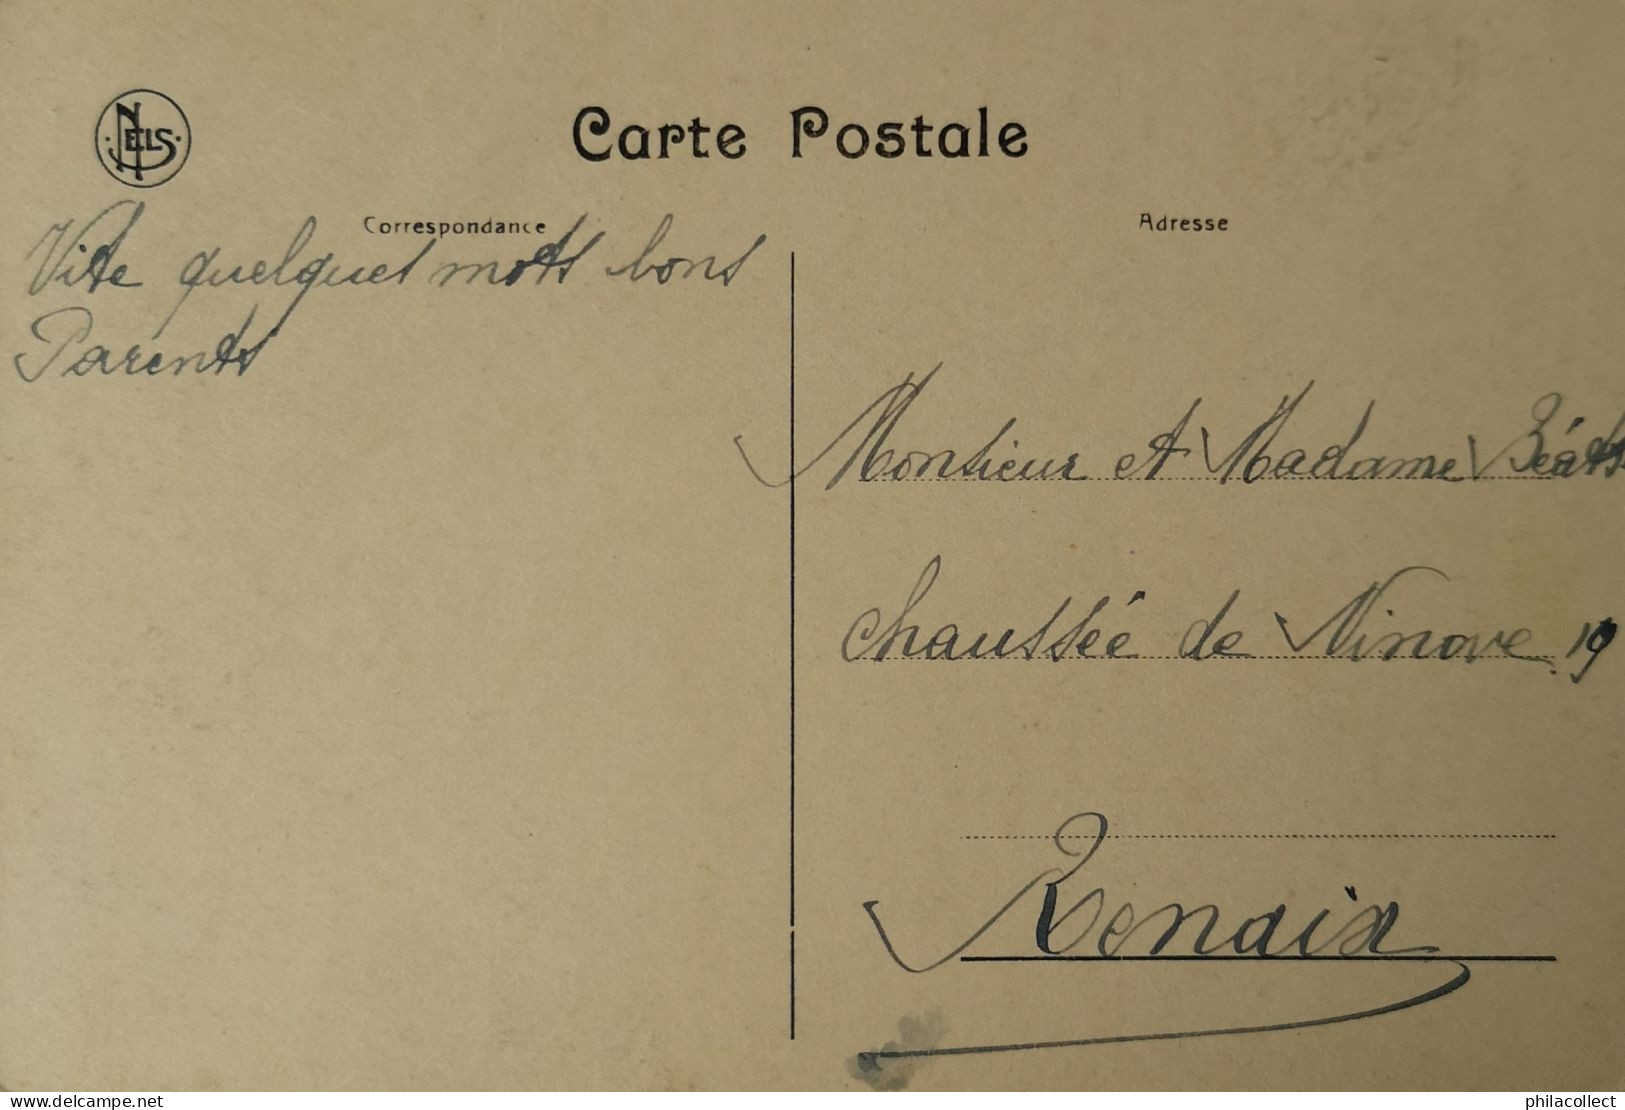 NELS
Carte Postale
Correspondance
Adresse
Vite quelques mots bons
Parents
Monsieur et Madame
chaussée de Ninove 19
Renaix
www.delcampe.net
philacollect